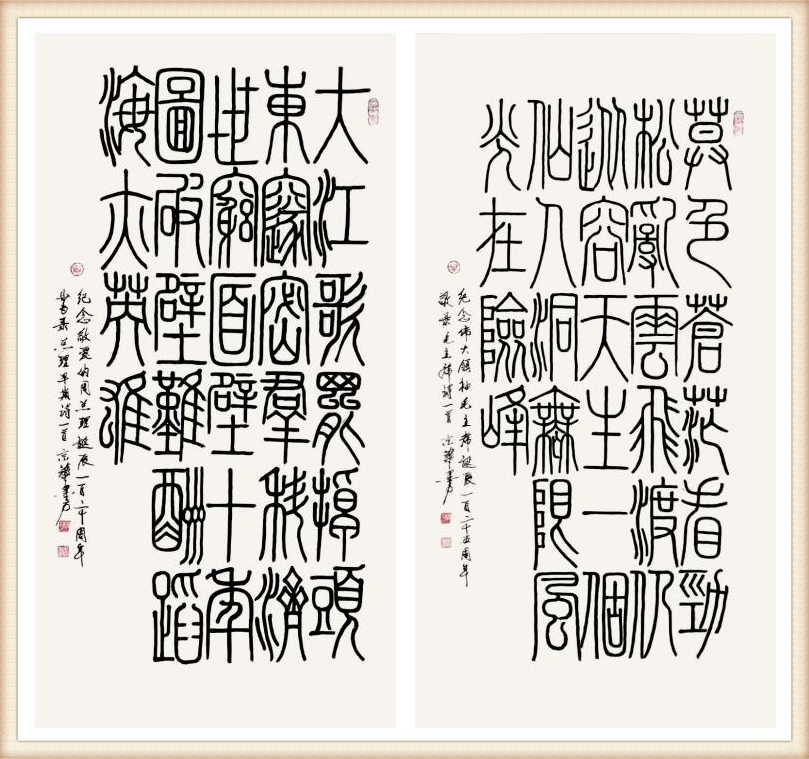 莫色蒼茫看勁
松亂雲飛渡仍
從容天生一個
仙人洞無限風
光在險峰
纪念伟大領袖毛主席誕辰一百二十五周年
敬录毛主席詩一首 華書
大江歌罷掉頭
東邃密羣科濟
世窮面壁十年
圖破壁難酬蹈
海亦英雄
纪念敬愛的周总理誕辰一百二十周年
录总理早歲詩一首 華書